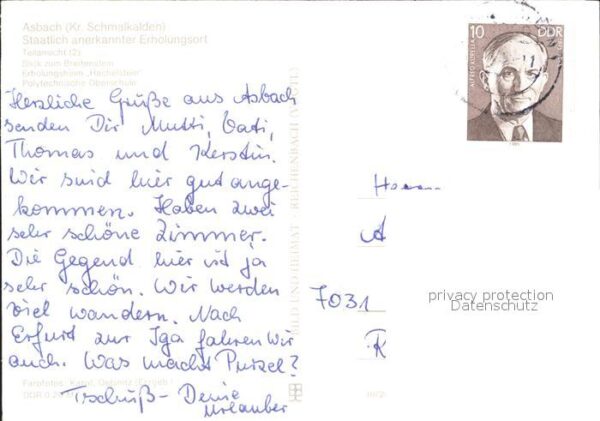 Asbach (Kr. Schmalkalden)
Staatlich anerkannter Erholungsort
Teilansicht (2)
Blick zum Breitenstein
Erholungsheim „Hachelstein“
Polytechnische Oberschule
Herzliche Grüße aus Asbach
senden Dir Mutti, Vati,
Thomas und Kerstin.
Wir sind hier gut ange-
kommen. Haben zwei
sehr schöne Zimmer.
Die Gegend hier ist ja
sehr schön. Wir werden
viel wandern. Nach
Erfurt zur Iga fahren wir
auch. Was macht Purzel?
Tschüß - Deine
Urlauber
Farbfotos:
DDR
BILD UND HEIMAT REICHENBACH
10 DDR
ALFRED KURELLA
Herrn
A
7031
R
privacy protection
Datenschutz